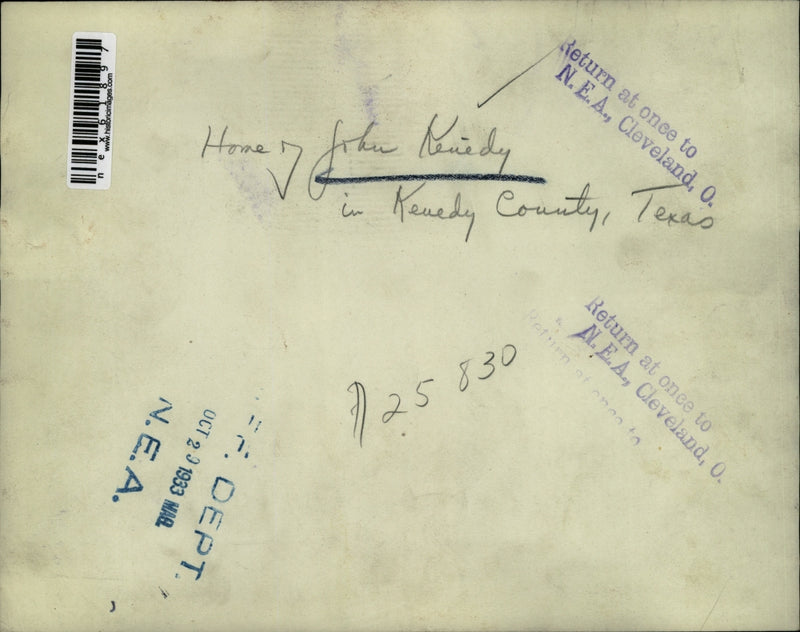 nex61897
www.historicimages.com
Return at once to
N.E.A., Cleveland, O.
Home of John Kenedy
in Kenedy County, Texas
Return at once to
N.E.A., Cleveland, O.
Return at once to
25 830
DEPT.
OCT 20 1933 MAR.
N.E.A.